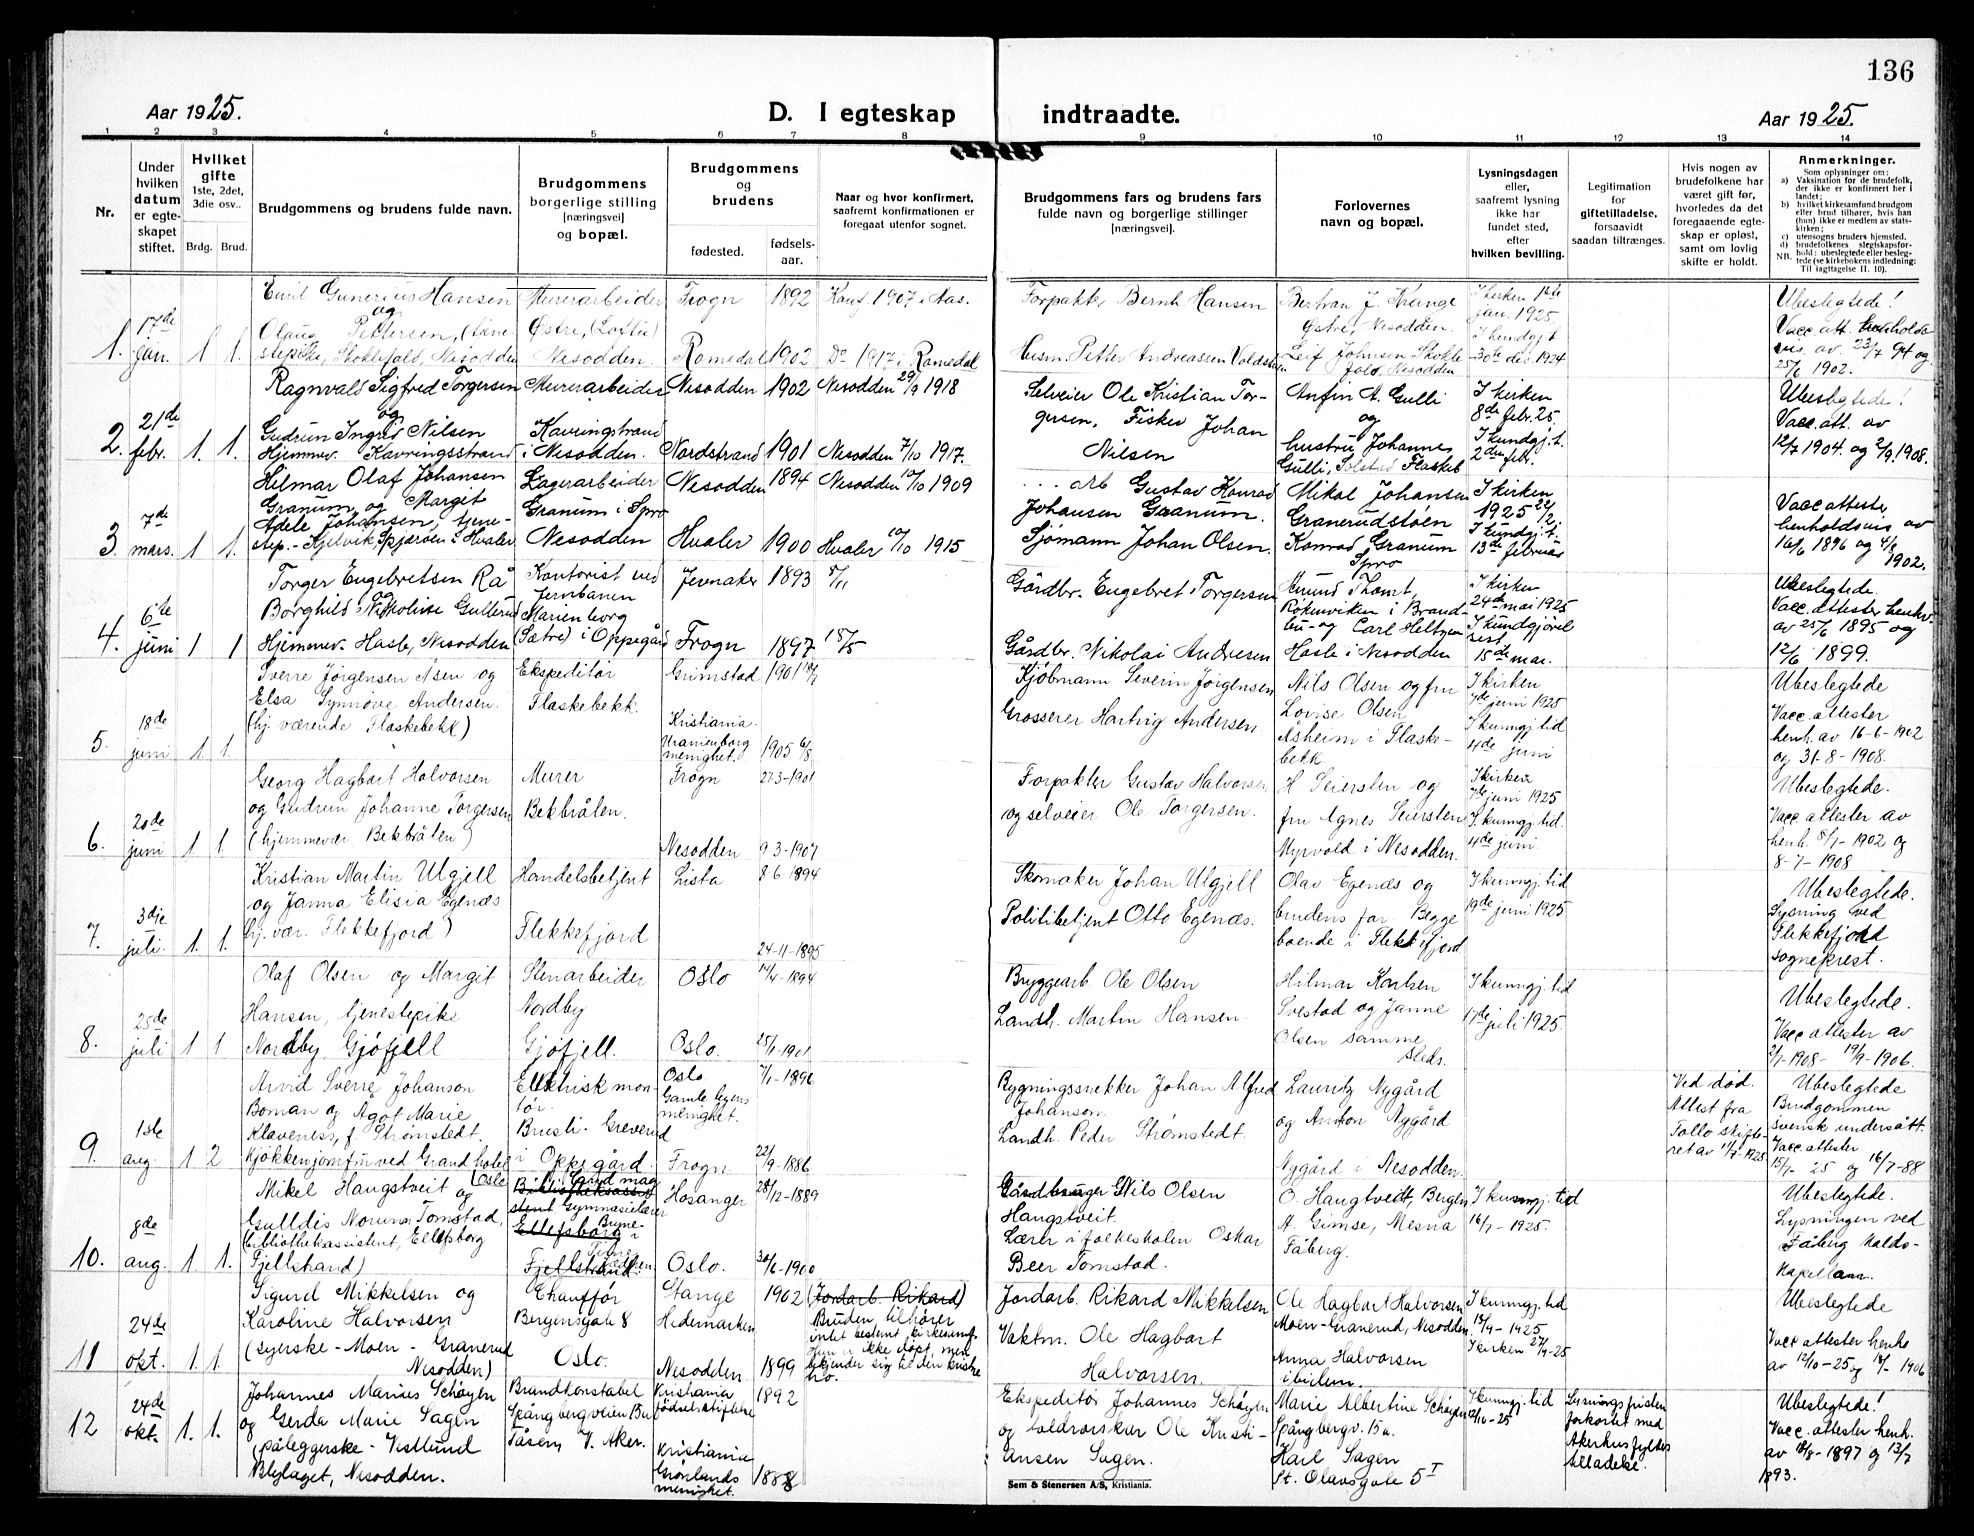 136
Aar 1925.
D. I egteskap indtraadte.
Aar 1925.
1 2 3 4 5 6 7 8 9 10 11 12 13 14
Nr.
Under hvilken datum er egte-skapet stiftet.
Hvilket gifte
1ste, 2det, 3die osv..
Brdg. Brud.
Brudgommens og brudens fulde navn.
Brudgommens borgerlige stilling [næringsvei] og bopæl.
Brudgommens og brudens
fødested.
fødsels-aar.
Naar og hvor konfirmert, saafremt konfirmationen er foregaat utenfor sognet.
Brudgommens fars og brudens fars fulde navn og borgerlige stillinger [næringsvei].
Forlovernes navn og bopæl.
Lysningsdagen eller, saafremt lysning ikke har fundet sted, efter hvilken bevilling.
Legitimation for giftetilladelse, forsaavidt saadan tiltrænges.
Hvis nogen av brudefolkene har været gift før, hvorledes da det foregaaende egte-skap er opløst, samt om lovlig skifte er holdt.
Anmerkninger.
Som oplysninger om:
a) Vaksination for de brudefolk, der ikke er konfirmert her i landet;
b) hvilket kirkesamfund brudgom eller brud tilhører, hvis han (hun) ikke er medlem av stats-kirken;
c) utensogns bruders hjemsted.
d) brudefolkenes slegtskapsfor-hold: ubeslegtede eller besleg-tede (se kirkebokens indledning: Til iagttagelse II. 10).
NB.
1. 17de jan. 1 1.
Emil Gunerius Hansen
og
Olaug Pettersen, (tjene-
stepike, Stokkefald, Nesodden
Murerarbeider
Østre, (Loftu)
Nesodden.
Frogn 1892 Konf. 1907 i Nes.
Romedal 1902 Do 1917 i Romedal
Forpakter Bernh Hansen
Husm. Petter Andreassen
Bertran J. Krange
Østre, Nesodden.
Leif Johnsen
Nesodden
I kirken 1ste
jan. 1925.
I kundgj. t
30te des. 1924
Ubeslegtede!
Vacc. att. henholds
vis av 23/7 94 og
25/6 1902.
2. 21de febr. 1. 1.
Ragnvald Sigfred Torgersen
og
Gudrun Ingrid Nilsen
Hjemmev. Kavringsstrand
Murerarbeider
Kavringstrand
i Nesodden.
Nesodden 1902 Nesodden 29/9 1918
Nordstrand 1901 Nesodden 7/10 1917.
Selveier Ole Kristian Tor-
gersen, Fisker Johan
Nilsen
Anfin A. Gulli
og
hustru Johanne
Gulli, Solstad Flaskeb
I kirken
8de febr. 25.
I kundgj. t.
2den febr.
Ubeslegtede!
Vacc. att. av
12/7 1904. og 2/9 1908.
3. 7de mars. 1 1.
Hilmar Olaf Johansen
Granum og Margit
Adele Johansen, tjene-
step. - Kjelvik, Spjærøen i Hvaler
Lagerarbeider
Granum i Spro
Nesodden
Nesodden 1894 Nesodden 10/10 1909
Hvaler 1900 Hvaler 10/10 1915
arb Gustav Konrad
Johansen Granum.
Sjømann Johan Olsen.
Mikal Johansen
Granerudstøen
Konrad Granum
Spro
I kirken
1925 22/2
I kundgj. t.
13de februar
Vacc. atteste
henholdsvis av
16/6 1896 og 4/8
1902.
4. 6te juni 1 1
Torger Engebretsen Rå
og
Borghild Nikoline Gullerud
Hjemmev. Hasle, Nesodden
Kontorist ved
Jernbanen
Marienborg
(Sætre) i Oppegård
Jevnaker 1893 5/11
Frogn 1897 18/5
Gårdbr. Engebret Torgersen
Gårdbr. Nikolai Andresen
Amund Thomt,
Røkenviken i Brand-
bu - og Carl Heltzen
Hasle i Nesodden
I kirken
24de mai 1925
I kundgjørel
sest
15de mai.
Ubeslegtede.
Vacc. attester henhv.
av 25/6 1895 og
12/6 1899.
5. 18de juni 1. 1.
Sverre Jørgensen Åsen og
Elsa Synnøve Andersen.
(hj. værende Flaskebekk)
Ekspeditør
Flaskebekk.
Grimstad 1901
Kristiania.
Uranienborg
menighet. 1905 6/8
Kjøbmann Severin Jørgensen
Grosserer Hartvig Andersen.
Nils Olsen og fru
Lovise Olsen
Åsheim i Flaske-
bekk
I kirken
7de juni 1925
I kunngj. tid
4de juni
Ubeslegtede
Vacc. attester
henh. av 16-6-1902
og 31-8-1908.
6. 20de juni 1 1.
Georg Hagbart Halvorsen
og Gudrun Johanne Torgersen
(hjemmevær. Bekbråten)
Murer
Bekbråten.
Frogn 27.3-1901
Nesodden 9 3-1907
Forpakter Gustav Halvorsen
og selveier Ole Torgersen.
H Seiersten og
fru Agnes Seiersten
Myrvold i Nesodden.
I kirken
7de juni 1925
I kunngj. tid.
4de juni.
Ubeslegtede.
Vacc. attester av
henh. 8/7 - 1902 og
8-7-1908
7. 3die juli. 1. 1.
Kristian Martin Ulgjell
og Janna Elisia Egenæs
hj. vær. Flekkefjord)
Handelsbetjent
Flekkefjord
Lista 8 6-1894
24-11-1895
Skomaker Johan Ulgjell
Politibetjent Otto Egenæs.
Olav Egenæs og
brudens far. Begge
boende i Flekkefjord
I kunngj. tid
19de juni 1925
Ubeslegtede.
Lysning ved
Flekkefjord
sogneprest.
8. 25de juli 1 1
Olaf Olsen og Margit
Hansen, tjenestepike
Nordby Gjøfjell
Stenarbeider
Nordby
Gjøfjell.
Oslo 14/4-1894
Oslo. 25/1-1901
Bryggearb Ole Olsen
Landh. Martin Hansen.
Hilmar Karlsen
Svestad og Janne
Olsen samme
steds.
I kunngj. tid
17de juli 1925.
Ubeslegtede.
Vacc attester av
2/7-1908 - 19/9-1906.
9. 1ste aug. 1 2
Arvid Sverre Johanson
Boman og Agot Marie
Klaveness, f. Strømstedt.
kjøkkenjomfru ved Grand hotel
Oslo
Elektrisk mon-
tør.
Brusti - Greverud
i Oppegård.
Oslo 7/1-1896
Gamle byens
menighet.
Frogn 22/9-1886
Bygningssnekker Johan Alfred
Johanson.
Landh. Peder Strømstedt.
Lauritz Nygård
og Anton Nygård
Nygård i Nesodden.
Ved død.
Attest fra
Follo skifte-
ret av 11/7-1925
Ubeslegtede
Brudgommen
svensk undersått.
Vacc attester
15/7- 25 og 16/7-88
10. 8de aug. 1. 1.
Mikel Haugstveit og
Gulldis Noruna Tomstad,
bibliothekassistent, Ellefsborg
Fjellstrand)
Cand mag
Bibliothekassist
stent Gymnasielærer
Ellefsborg i
Fjellstrand.
Hosanger 28/12-1889
Oslo. 30/6-1900
Gårdbruger Nils Olsen
Haugstveit.
Lærer i folkeskolen Oskar
Beer Tomstad.
O. Haugtveit, Bergen
A. Gimse, Mesna
Fåberg.
I kunngj. tid
16/7-1925.
Ubeslegtede.
Lysningen ved
Fåberg Kalds-
kapellan.
11 24de okt. 1. 1.
Sigurd Mikkelsen og
Karoline Halvorsen
(syerske - Moen - Granerud
Nesodden)
Chauffør
Bergensgate 8
Oslo.
Stange 1902
Hedemarken
Nesodden 1899
(Jordarb. Rikard)
Bruden tilhører
intet bestemt kirkesamf.
Hun er ikke døpt, men
bekjender sig til den kristne
Jordarb. Rikard Mikkelsen
Vaktm. Ole Hagbart
Halvorsen.
Ole Hagbart Halvorsen
Moen-Granerud, Nesodden.
Anna Halvorsen
ibidem.
I kunngj. tid
18/9-1925
I kirken 27/9-25
Ubeslegtede
Vacc attester henho
av 12/10-25 og 1906
12 24de okt. 1. 1.
Johannes Marius Schøyen
og Gerda Marie Sagen
(påleggerske - Vestlund
Blylaget, Nesodden.
Brandkonstabel
Spångbergveien 15a
Tåsen, V. Aker.
Kristiania 1892
fødselsstiftelse
Kristiania
Grønlands
menighet. 1888
Ekspeditør Johannes Schøyen
og Ole Kristi-
ansen Sagen.
Marie Albertine Schøyen
Spångbergv. 15a.
Karl Sagen
St. Olavsgate 5 I
I kunngj. tid
12/10-25
Lysningsfristen
forkortet med
Akershus fylkes
tilladelse.
Ubeslegtede!
Vacc. attester henh.
av 18/8-1897 og 13/7
1893.
Sem & Stenersen A/S, Kristiania.